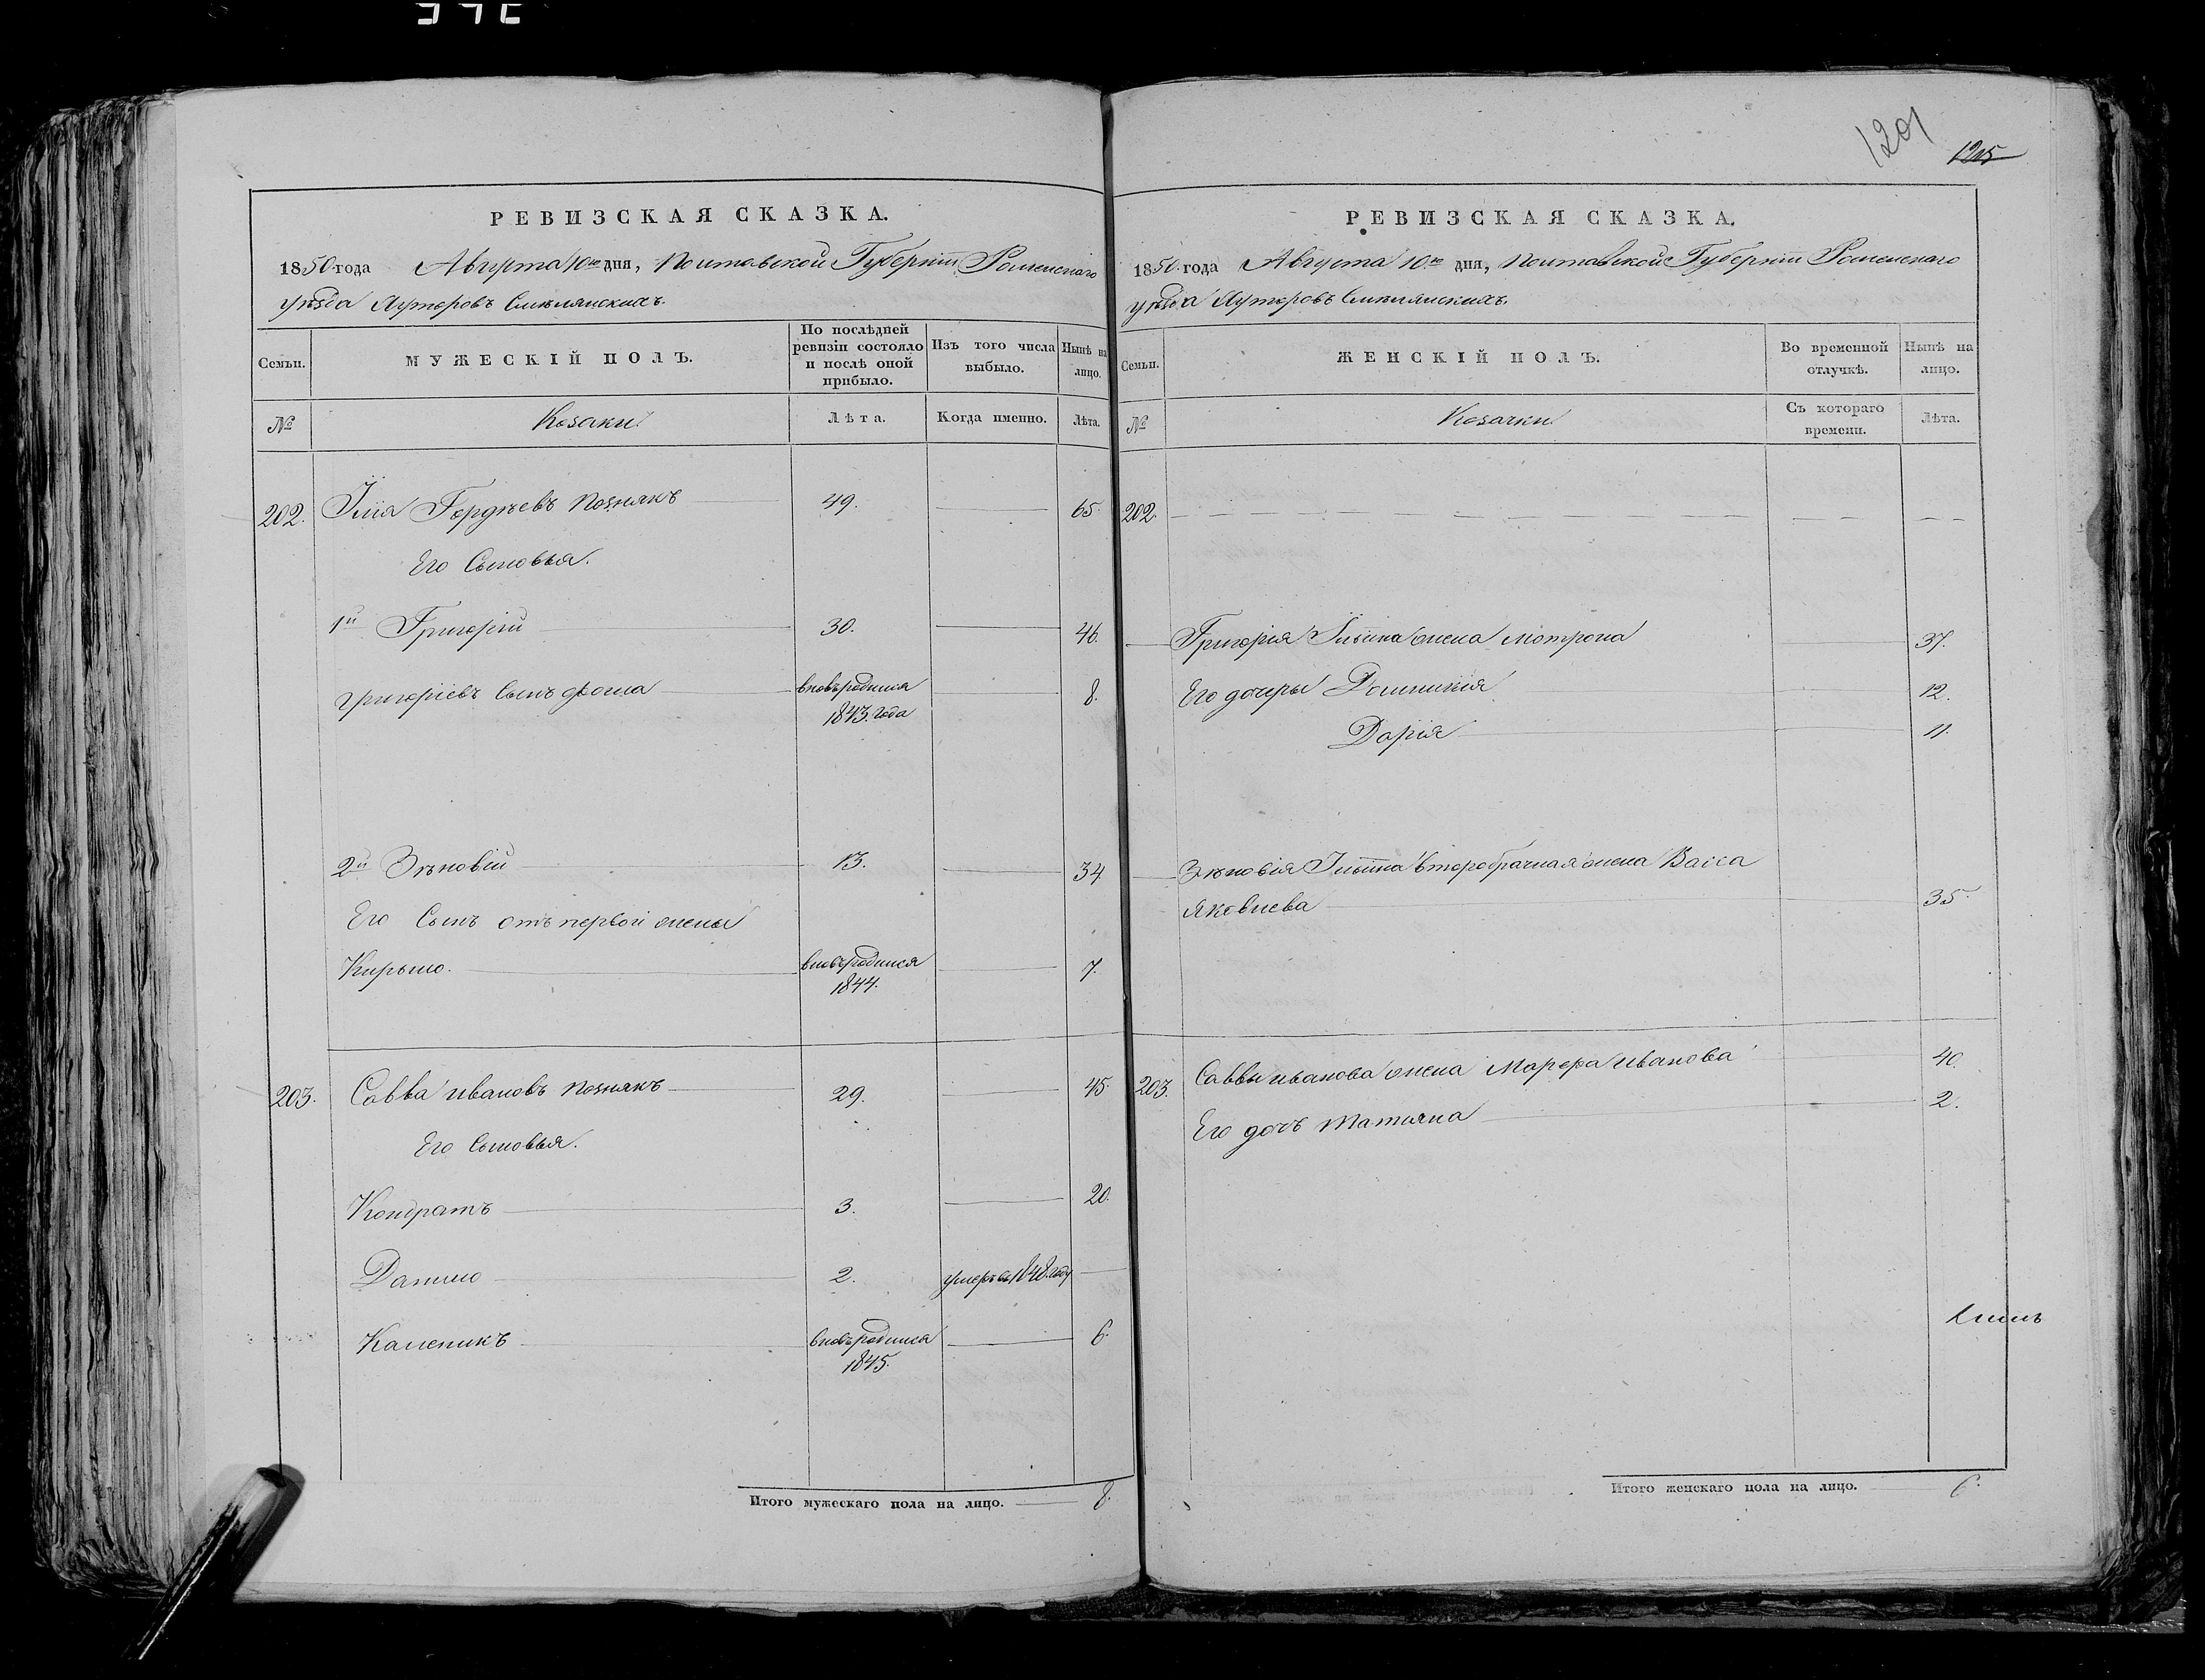 РЕВИЗСКАЯ СКАЗКА.
1850 года Августа 10го дня, Полтавской Губернiи, Роменскаго
уѣзда Хуторовъ Смѣлянскихъ.
Семьи.
МУЖЕСКІЙ ПОЛЪ.
По послѣдней ревизіи состояло и послѣ оной прибыло.
Изъ того числа выбыло.
Нынѣ на лицо.
№
Козаки
Лѣта.
Когда именно.
Лѣта.
202. Илія Гордѣевъ Познякъ 49. 65.
Его Сыновья.
1й Григорій 30. 46.
Григоріевъ Сынъ Фома вновь родился 8.
1843. года
2й Зѣновій 13. 34
Его Сынъ отъ первой жены
Кирыло. вновь родился 7.
1844.
203. Савва Ивановъ Познякъ 29. 45.
Его Сыновья.
Кондратъ 3. 20.
Данило 2. умеръ въ 1848. году
Каленикъ вновь родился 6.
1845.
Итого мужескаго пола на лицо. 8.
1201
1215
РЕВИЗСКАЯ СКАЗКА.
1850. года Августа 10.го дня, Полтавской Губернiи Роменскаго
уѣзда Хуторовъ Смѣлянскихъ.
Семьи.
ЖЕНСКІЙ ПОЛЪ.
Во временной отлучкѣ.
Нынѣ на лицо.
№
Козачки
Съ котораго времени.
Лѣта.
202.
Григорія Ильина жена Мотрона 37.
Его дочеры Домникія 12.
Дарія 11.
Зѣновія Ильина второбрачная жена Васса
Яковлева 35.
203. Саввы Иванова жена Марфа Иванова 40.
Его дочь Татияна 2.
Итого женскаго пола на лицо. 6.